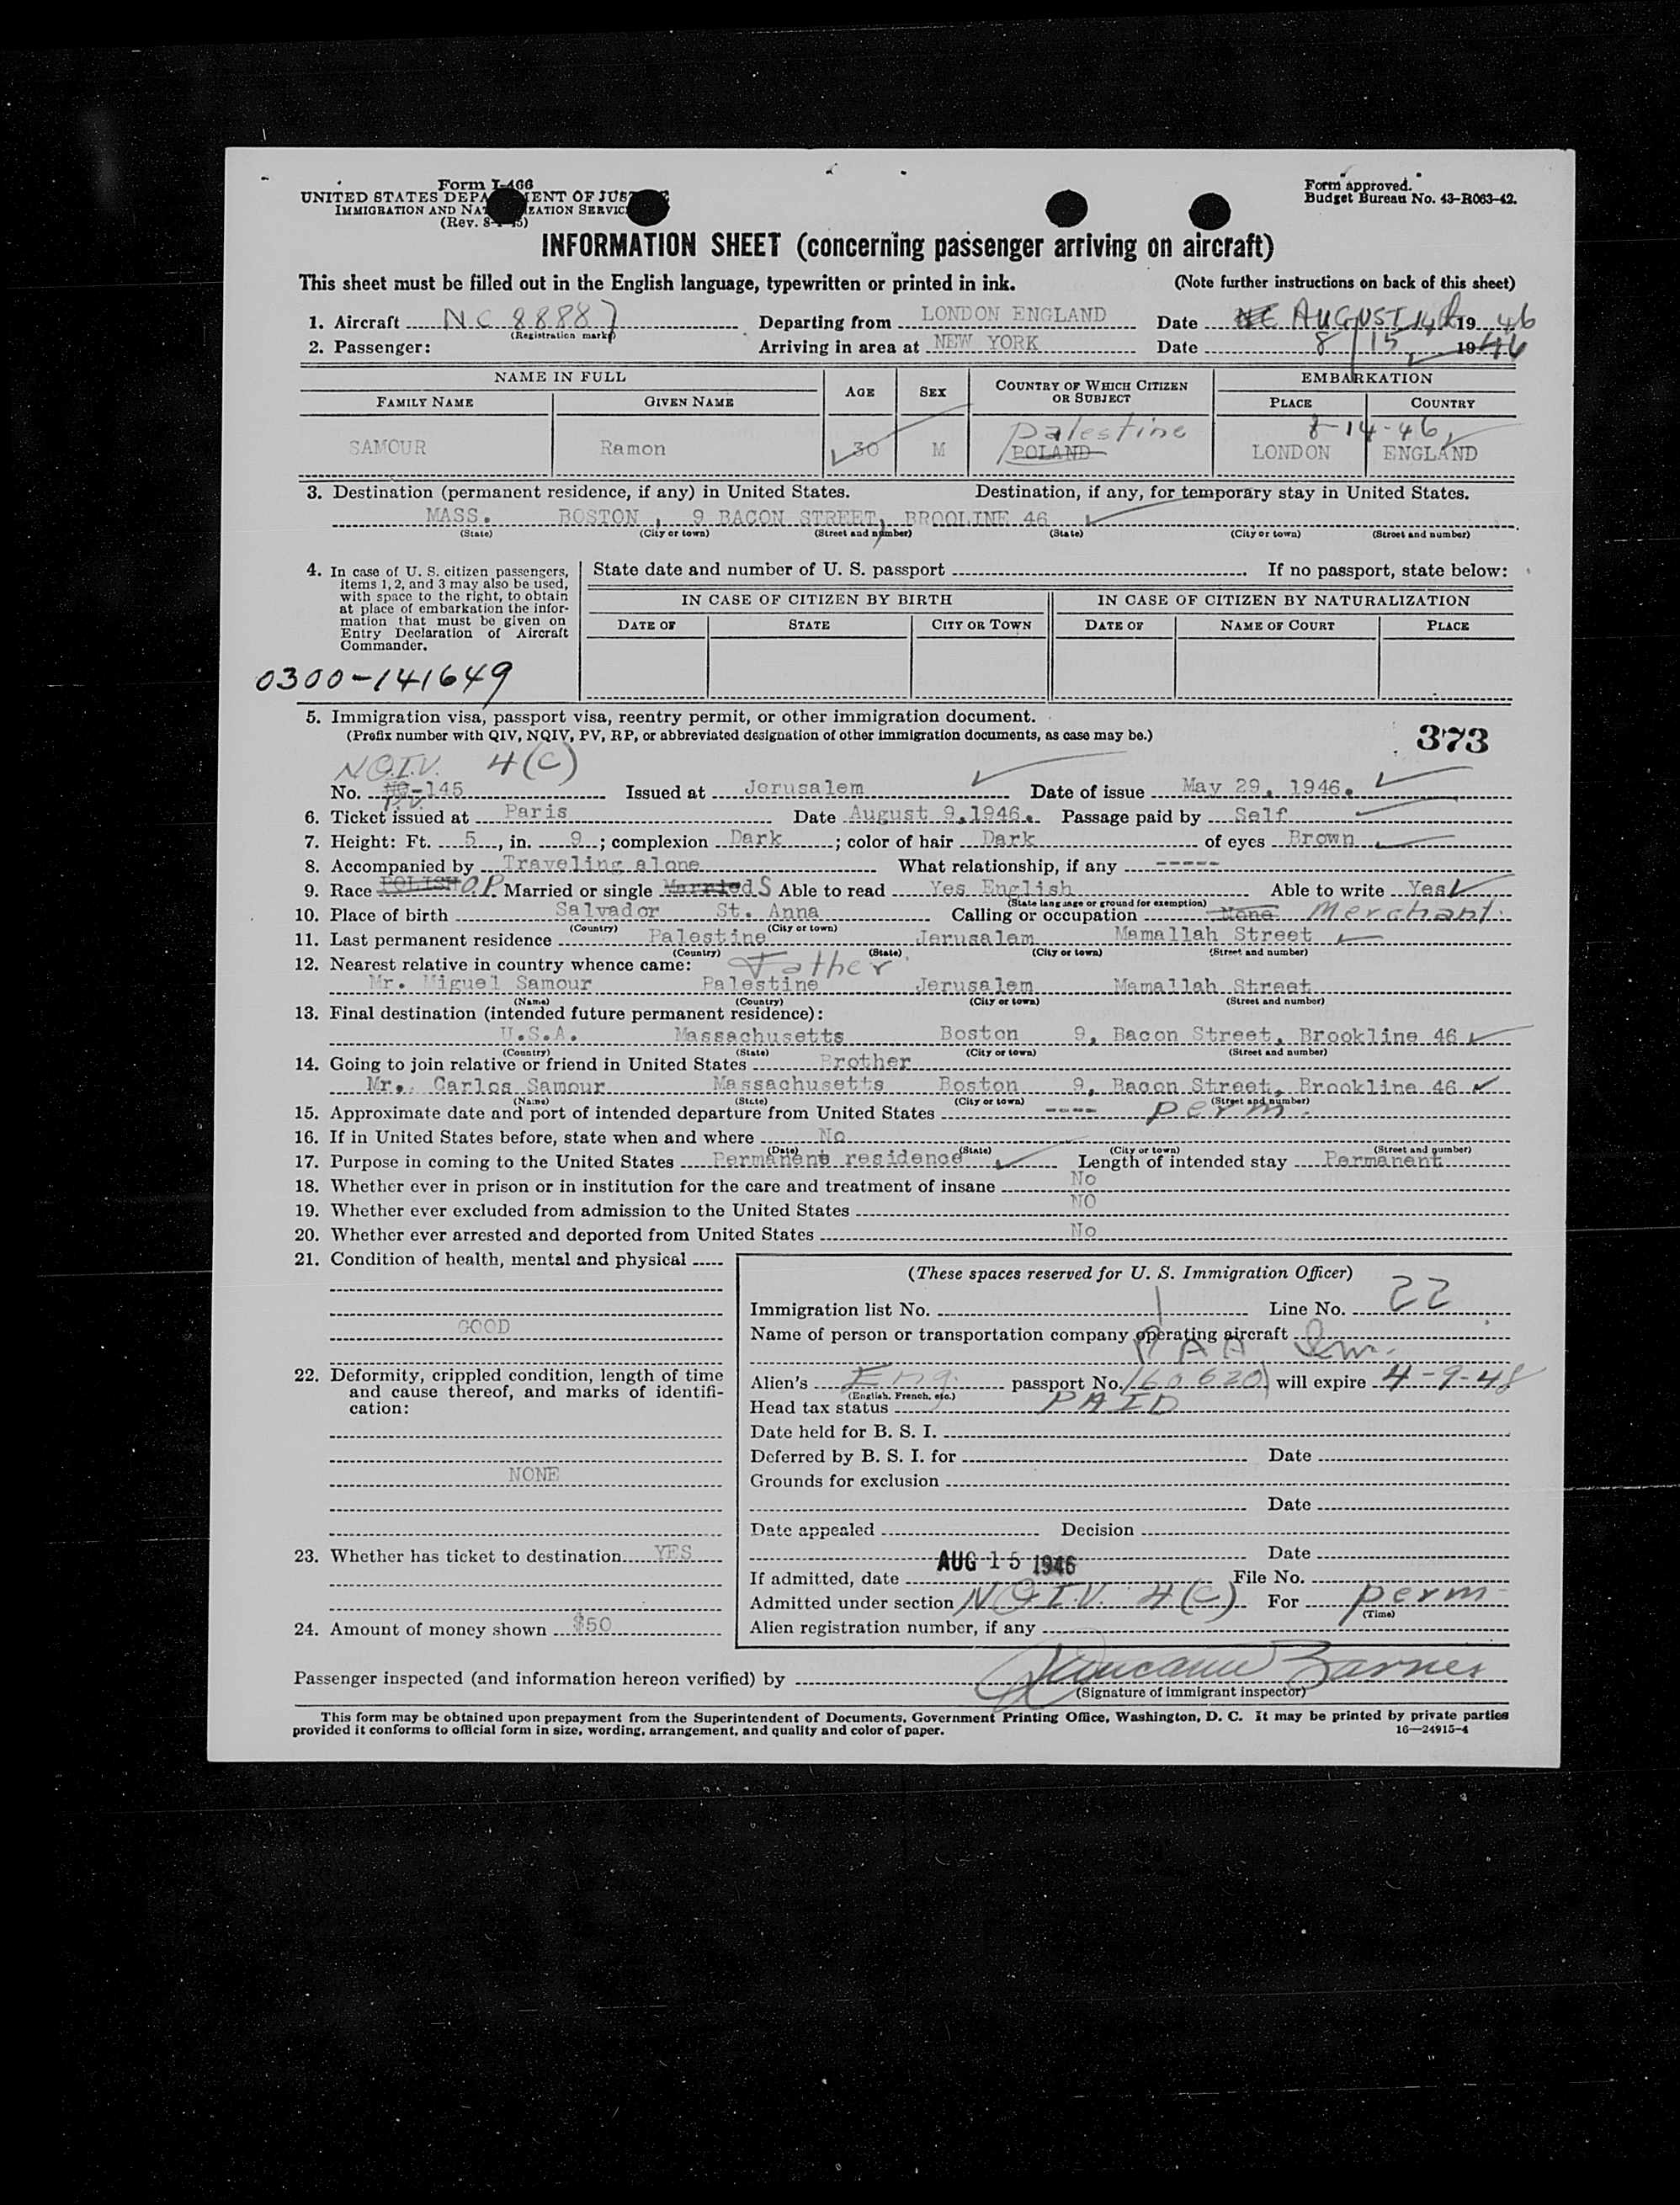 Form I-466
UNITED STATES DEPARTMENT OF JUSTICE
IMMIGRATION AND NATURALIZATION SERVICE
(Rev. 8-1-45)
Form approved.
Budget Bureau No. 43-R063-42.
INFORMATION SHEET (concerning passenger arriving on aircraft)
This sheet must be filled out in the English language, typewritten or printed in ink. (Note further instructions on back of this sheet)
1. Aircraft NC 88887 Departing from LONDON ENGLAND Date AUGUST 14th 1946
(Registration marks)
2. Passenger: Arriving in area at NEW YORK Date 8/15 1946
NAME IN FULL AGE SEX COUNTRY OF WHICH CITIZEN OR SUBJECT EMBARKATION
FAMILY NAME GIVEN NAME PLACE COUNTRY
Palestine 8-14-46
SAMOUR Ramon 30 M POLAND LONDON ENGLAND
3. Destination (permanent residence, if any) in United States. Destination, if any, for temporary stay in United States.
MASS. BOSTON , 9 BACON STREET, BROOLINE 46
(State) (City or town) (Street and number) (State) (City or town) (Street and number)
4. In case of U. S. citizen passengers, items 1, 2, and 3 may also be used, with space to the right, to obtain at place of embarkation the information that must be given on Entry Declaration of Aircraft Commander.
State date and number of U. S. passport If no passport, state below:
IN CASE OF CITIZEN BY BIRTH IN CASE OF CITIZEN BY NATURALIZATION
DATE OF STATE CITY OR TOWN DATE OF NAME OF COURT PLACE
0300-141649
5. Immigration visa, passport visa, reentry permit, or other immigration document.
(Prefix number with QIV, NQIV, PV, RP, or abbreviated designation of other immigration documents, as case may be.)
373
N.Q.I.V. 4(C)
No. 145 Issued at Jerusalem Date of issue May 29, 1946.
P.V.
6. Ticket issued at Paris Date August 9.1946. Passage paid by Self
7. Height: Ft. 5, in. 9; complexion Dark; color of hair Dark of eyes Brown
8. Accompanied by Traveling alone What relationship, if any -----
9. Race POLISH O.P. Married or single Married S Able to read Yes English Able to write Yes
(State language or ground for exemption)
10. Place of birth Salvador St. Anna Calling or occupation None Merchant.
(Country) (City or town)
11. Last permanent residence Palestine Jerusalem Mamallah Street
(Country) (State) (City or town) (Street and number)
12. Nearest relative in country whence came: Father
Mr. Miguel Samour Palestine Jerusalem Mamallah Street
(Name) (Country) (City or town) (Street and number)
13. Final destination (intended future permanent residence):
U.S.A. Massachusetts Boston 9, Bacon Street, Brookline 46
(Country) (State) (City or town) (Street and number)
14. Going to join relative or friend in United States Brother
Mr. Carlos Samour Massachusetts Boston 9, Bacon Street, Brookline 46
(Name) (State) (City or town) (Street and number)
15. Approximate date and port of intended departure from United States ---- perm.
16. If in United States before, state when and where No
(Date) (State) (City or town) (Street and number)
17. Purpose in coming to the United States Permanent residence Length of intended stay Permanent
18. Whether ever in prison or in institution for the care and treatment of insane No
19. Whether ever excluded from admission to the United States NO
20. Whether ever arrested and deported from United States No
21. Condition of health, mental and physical
GOOD
22. Deformity, crippled condition, length of time and cause thereof, and marks of identification:
NONE
23. Whether has ticket to destination YES
24. Amount of money shown $50
(These spaces reserved for U. S. Immigration Officer)
Immigration list No. 1 Line No. 22
Name of person or transportation company operating aircraft
PAA
Alien's Eng. passport No. 160620 will expire 4-9-48
(English, French, etc.)
Head tax status PAID
Date held for B. S. I.
Deferred by B. S. I. for Date
Grounds for exclusion
Date
Date appealed Decision
Date
If admitted, date AUG 15 1946 File No.
Admitted under section N.Q.I.V. 4(C) For perm
(Time)
Alien registration number, if any
Passenger inspected (and information hereon verified) by Barnes
(Signature of immigrant inspector)
This form may be obtained upon prepayment from the Superintendent of Documents, Government Printing Office, Washington, D. C. It may be printed by private parties
provided it conforms to official form in size, wording, arrangement, and quality and color of paper. 16—24915-4